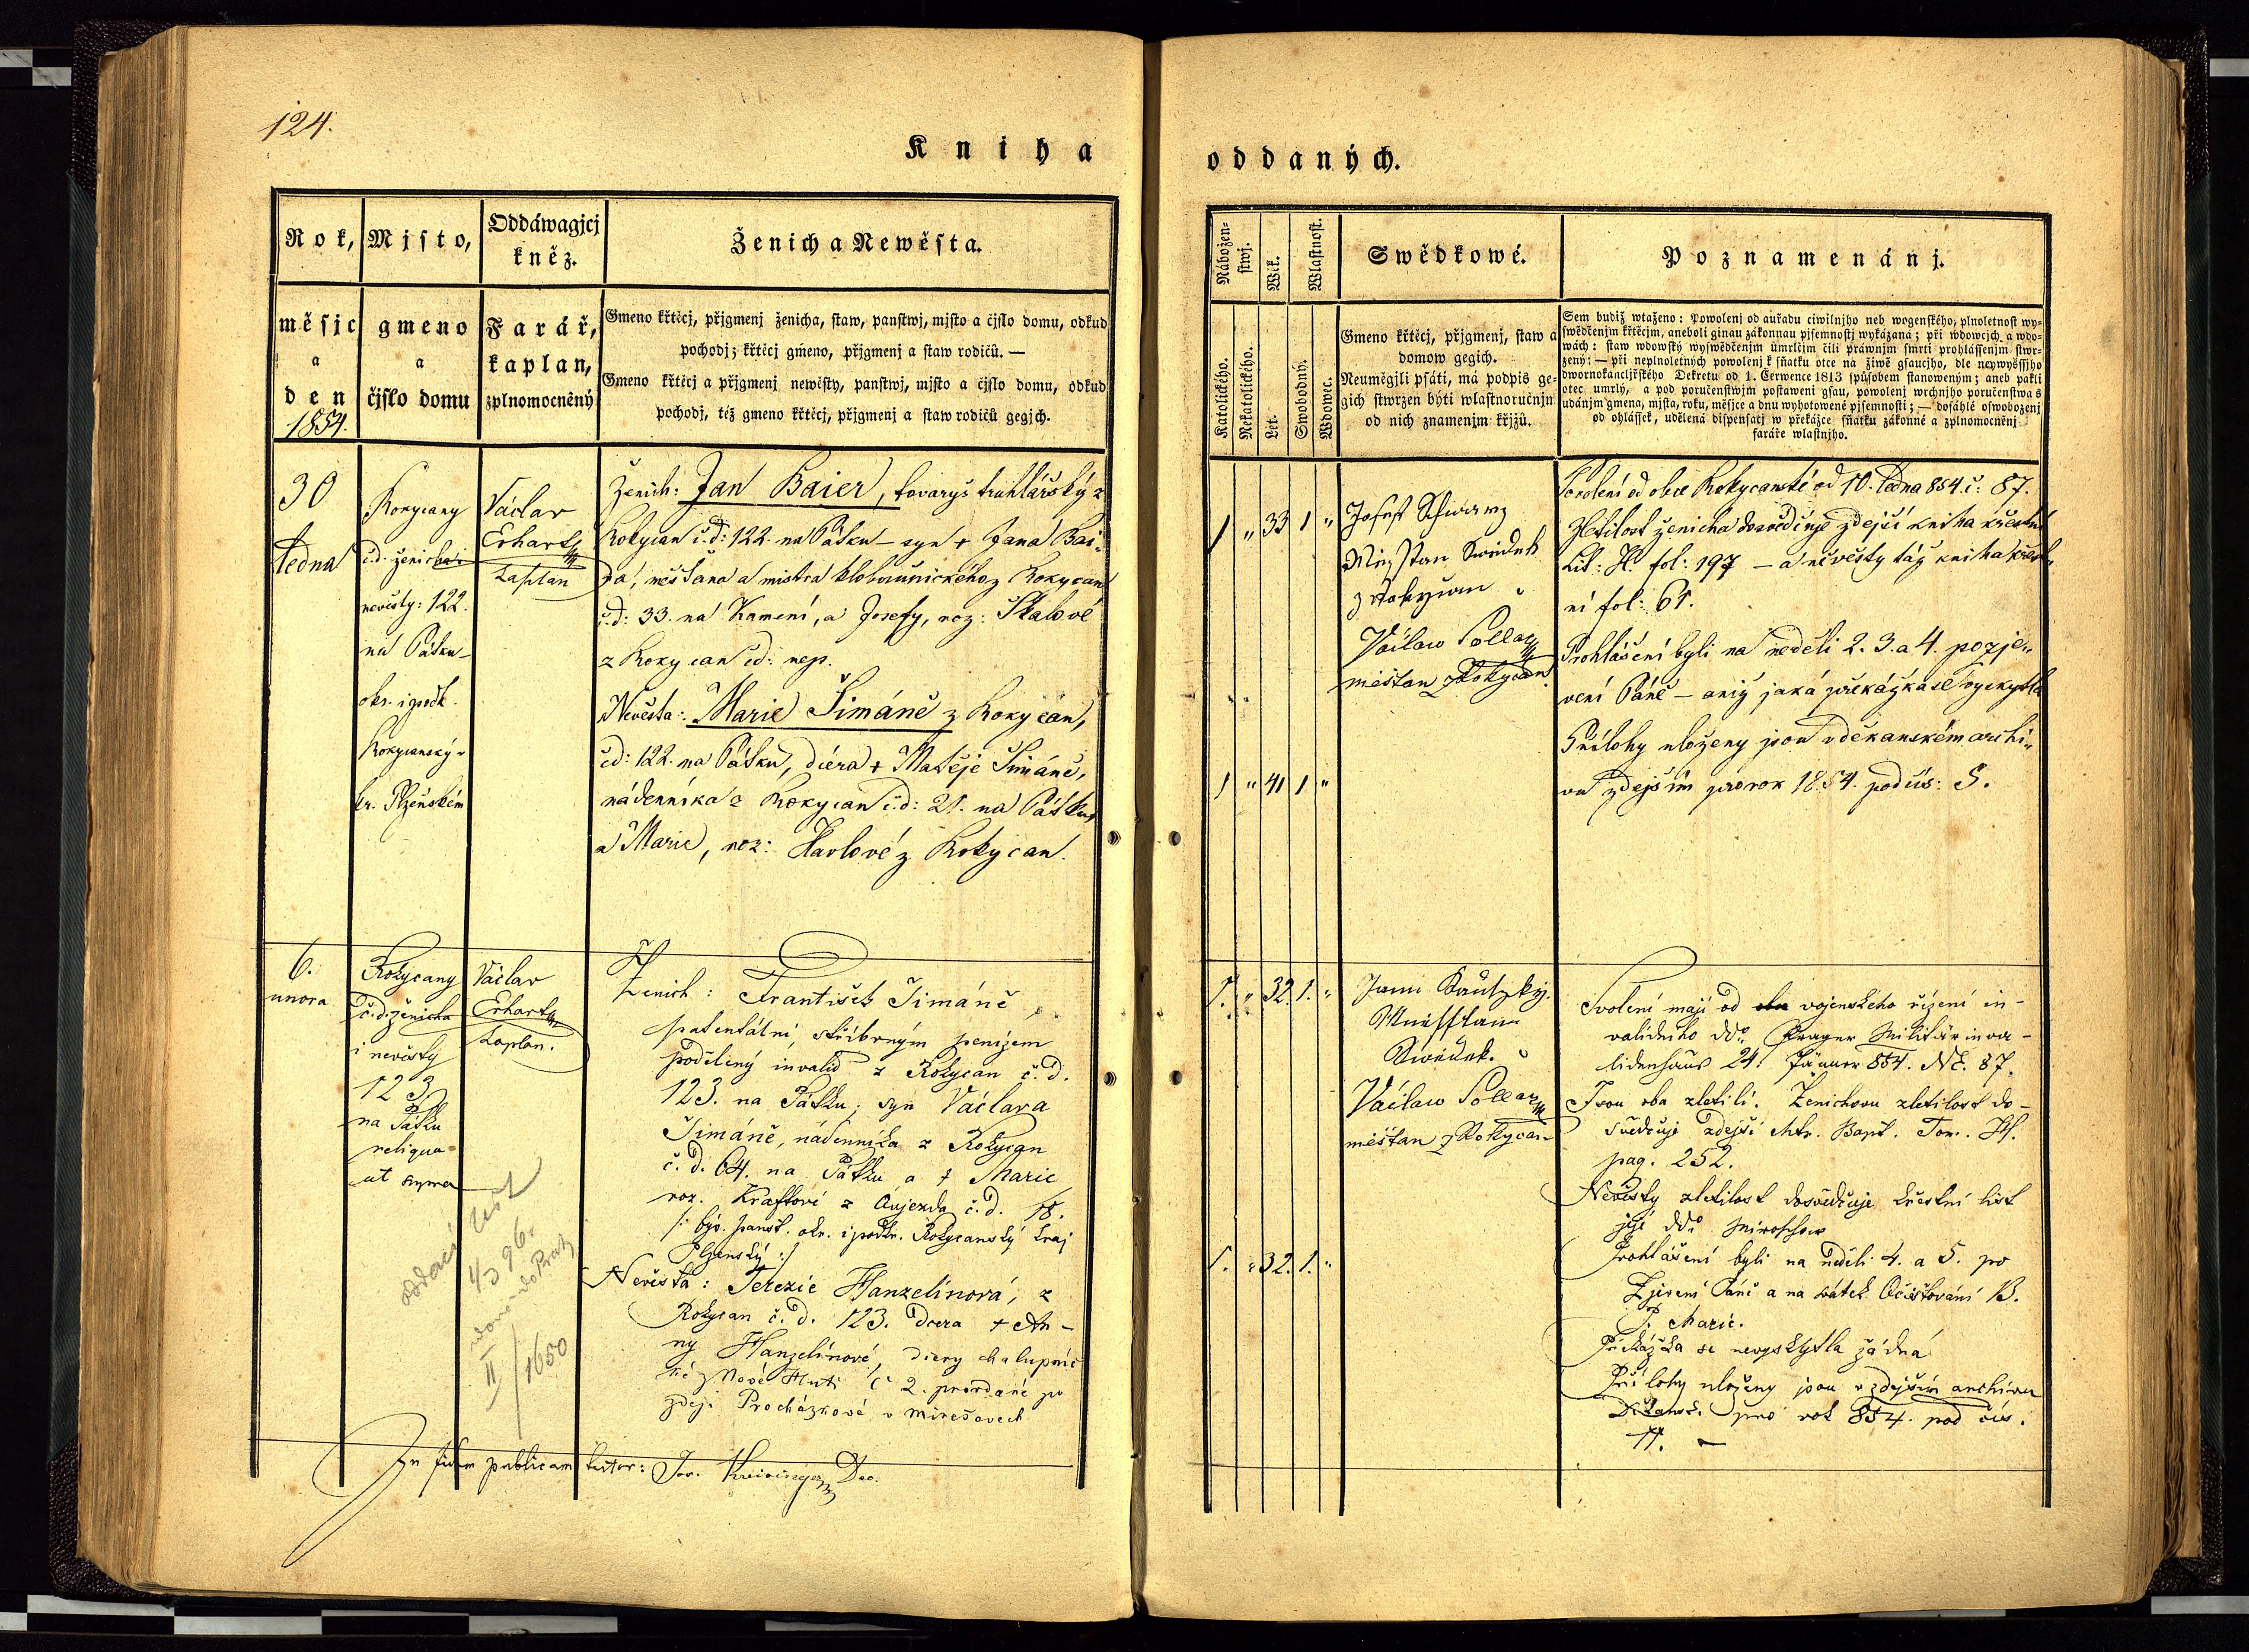 124.
Kniha
oddaných.
Rok,
měsjc
a
den
1854.
Mjsto,
gmeno
a
čjslo domu
Oddáwagjcj
kněz.
Farář,
kaplan,
zplnomocněný
Ženich a Newěsta.
Gmeno křticj, přjgmenj ženicha, staw, panstwj, mjsto a čjslo domu, odkud
pochodj; křticj gmeno, přjgmenj a staw rodičů. —
Gmeno křticj a přjgmenj newěsty, panstwj, mjsto a čjslo domu, odkud
pochodj, též gmeno křticj, přjgmenj a staw rodičů gegjch.
Nábožen-
stwj.
Katolického.
Nekatolického.
Wěk.
Let.
Wlastnost.
Swobodný.
Wdowec.
Swědkowé.
Gmeno křticj, přjgmenj, staw a
domow gegich.
Neuměgjli psáti, má podpis ge-
gich stwrzen býti wlastnoručnjm
od nich znamenjm křjžů.
Poznamenánj.
Sem budiž wtaženo: Powolenj od auřadu ciwilnjho neb wogenského, plnoletnost wy-
swědčenjm křticjm, aneboli ginau zákonnau pjsemnostj wykázaná; při wdowcjch a wdo-
wách: staw wdowský wyswědčenjm úmrlčjm čili práwnjm smrti prohlássenjm stwr-
zený; — při neplnoletných powolenj k sňatku otce na žiwě gsaucjho, dle neywyššjho
dwornokancljřského Dekretu od 1. Čerwence 1813 způsobem stanoweným; aneb pakli
otec umrlý, a pod poručenstwjm postaweni gsau, powolenj wrchnjho poručenstwa s
udánjm gmena, mjsta, roku, měsjce a dnu wyhotowené pjsemnosti; — dosáhlé oswobozenj
od ohlássek, udělená dispensacj w překážce sňatku zákonné a zplnomocněnj
faráře wlastnjho.
30
ledna
Rokycany
č.d. ženicha i
nevěsty: 122.
na Pátku
okr. i podk.
Rokycanský v
kr. Plzeňském
Václav
Erhart
kaplan
Ženich: Jan Baier, tovaryš truhlářský z
Rokycan č.d: 122. na Pátku – syn + Jana Bai-
ra, měšťana a mistra kloboučnického z Rokycan
č.d: 33. na Kamení, a Josefy, roz: Skalové
z Rokycan čd: nep.
Nevěsta: Marie Šimáně z Rokycan,
čd: 122. na Pátku, dcera + Matěje Šimáně,
nádenníka z Rokycan č.d: 21. na Pátku,
a Marie, roz: Havlové z Rokycan.
1 " 33 1 "
1 " 41 1 "
Josef Schwarz
z Rokycan
Václaw Pollak
měštan z Rokycan
Svolení od obce Rokycanské od 10. ledna 854. č: 87.
Zletilost ženicha dosvědčuje zdejší kniha křestní
Lit: H. fol: 197 – a nevěsty táž kniha křest-
ní fol: 61.
Prohlášení byli na neděli 2. 3. a 4. po zje-
vení Páně – aniž jaká překážka se vyskytla
Přílohy uloženy jsou v děkanském archi-
vu zdejším pro rok 1854. pod čís: 5.
6.
unora
Rokycany
č.d. ženicha
i nevěsty
123
na Pátku
reliqua
ut supra
Václav
Erhart
kaplan.
Ženich: František Šimáně,
patentální, stříbrným penízem
podělený invalid z Rokycan č. d.
123. na Pátku; syn Václava
Šimáně, nádenníka z Rokycan
č. d. 64. na Pátku a + Marie
roz. Kraftové z Oujezda č. d. 18.
/: býv. panst. okr. i podkr. Rokycanský kraj
Plzenský :/
Nevěsta: Terezie Hanzelínová, z
Rokycan č. d. 123. dcera + An-
ny Hanzelínové, dcery chalupnic-
ké z Nové Huti č 2. provdané po
zděj. Procházkové v Mirešovech
oddací list
4/3 96.
II
1650
1. " 32. 1. "
1. " 32. 1. "
Václaw Pollak
měštan z Rokycan
Svolení mají od vojenského řízení in-
validního ddo Prager Militärinva-
lidenhaus 24. Jänner 854. Nč. 87.
Jsou oba zletilí. Ženichovu zletilost do-
svědčuje zdejší Mtr. Bapt. Tom. H.
pag. 252.
Nevěsty zletilost dosvědčuje křestní list
její ddo Miroschow
Prohlášení byli na neděli 4. a 5. po
Zjevení Páně a na svátek Očišťování B.
P. Marie.
Překážka se nevyskytla žádná
Přílohy uloženy jsou v zdejším archivu
Děkansk. pro rok 854. pod čís.
11. –
In fidem publicam testor: Jos. Kreisinger Dec.